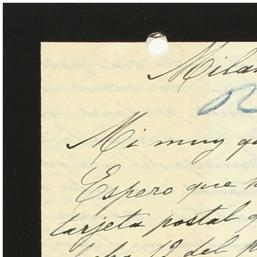 Milan
Mi muy qu
Espero que h
tarjeta postal q
cha 12 del p